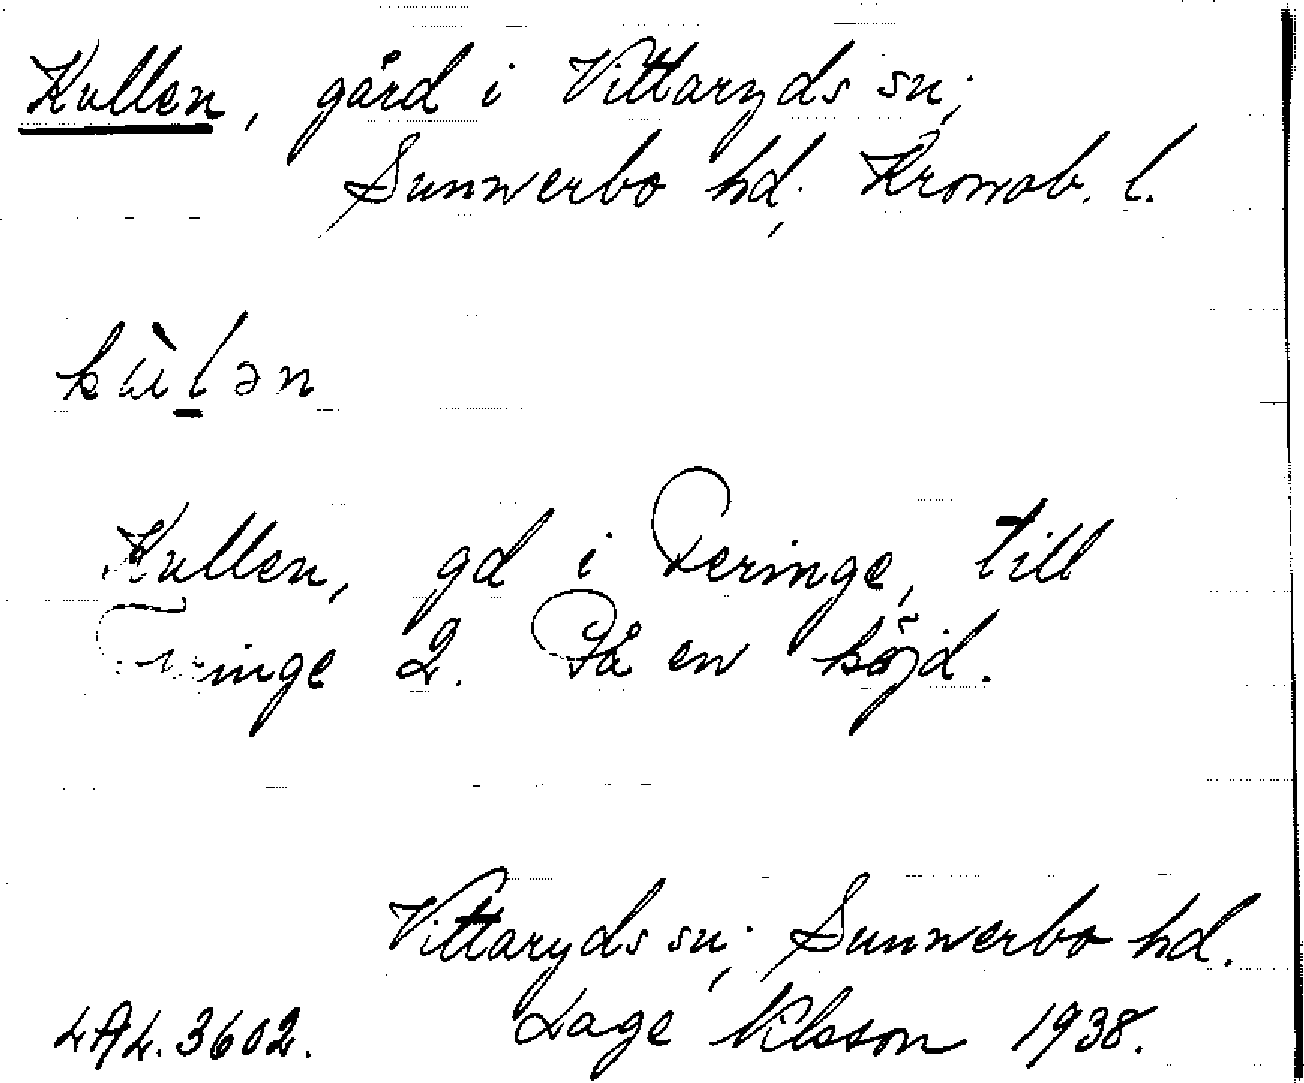 Kullen, gård i Vittaryds sn,
Sunnerbo hd, Kronob. l.
kùlən
Kullen, gd i Feringe, till
Feringe 2. På en höjd.
Vittaryds sn, Sunnerbo hd.
LAL. 3602. Lage Nilsson 1938.